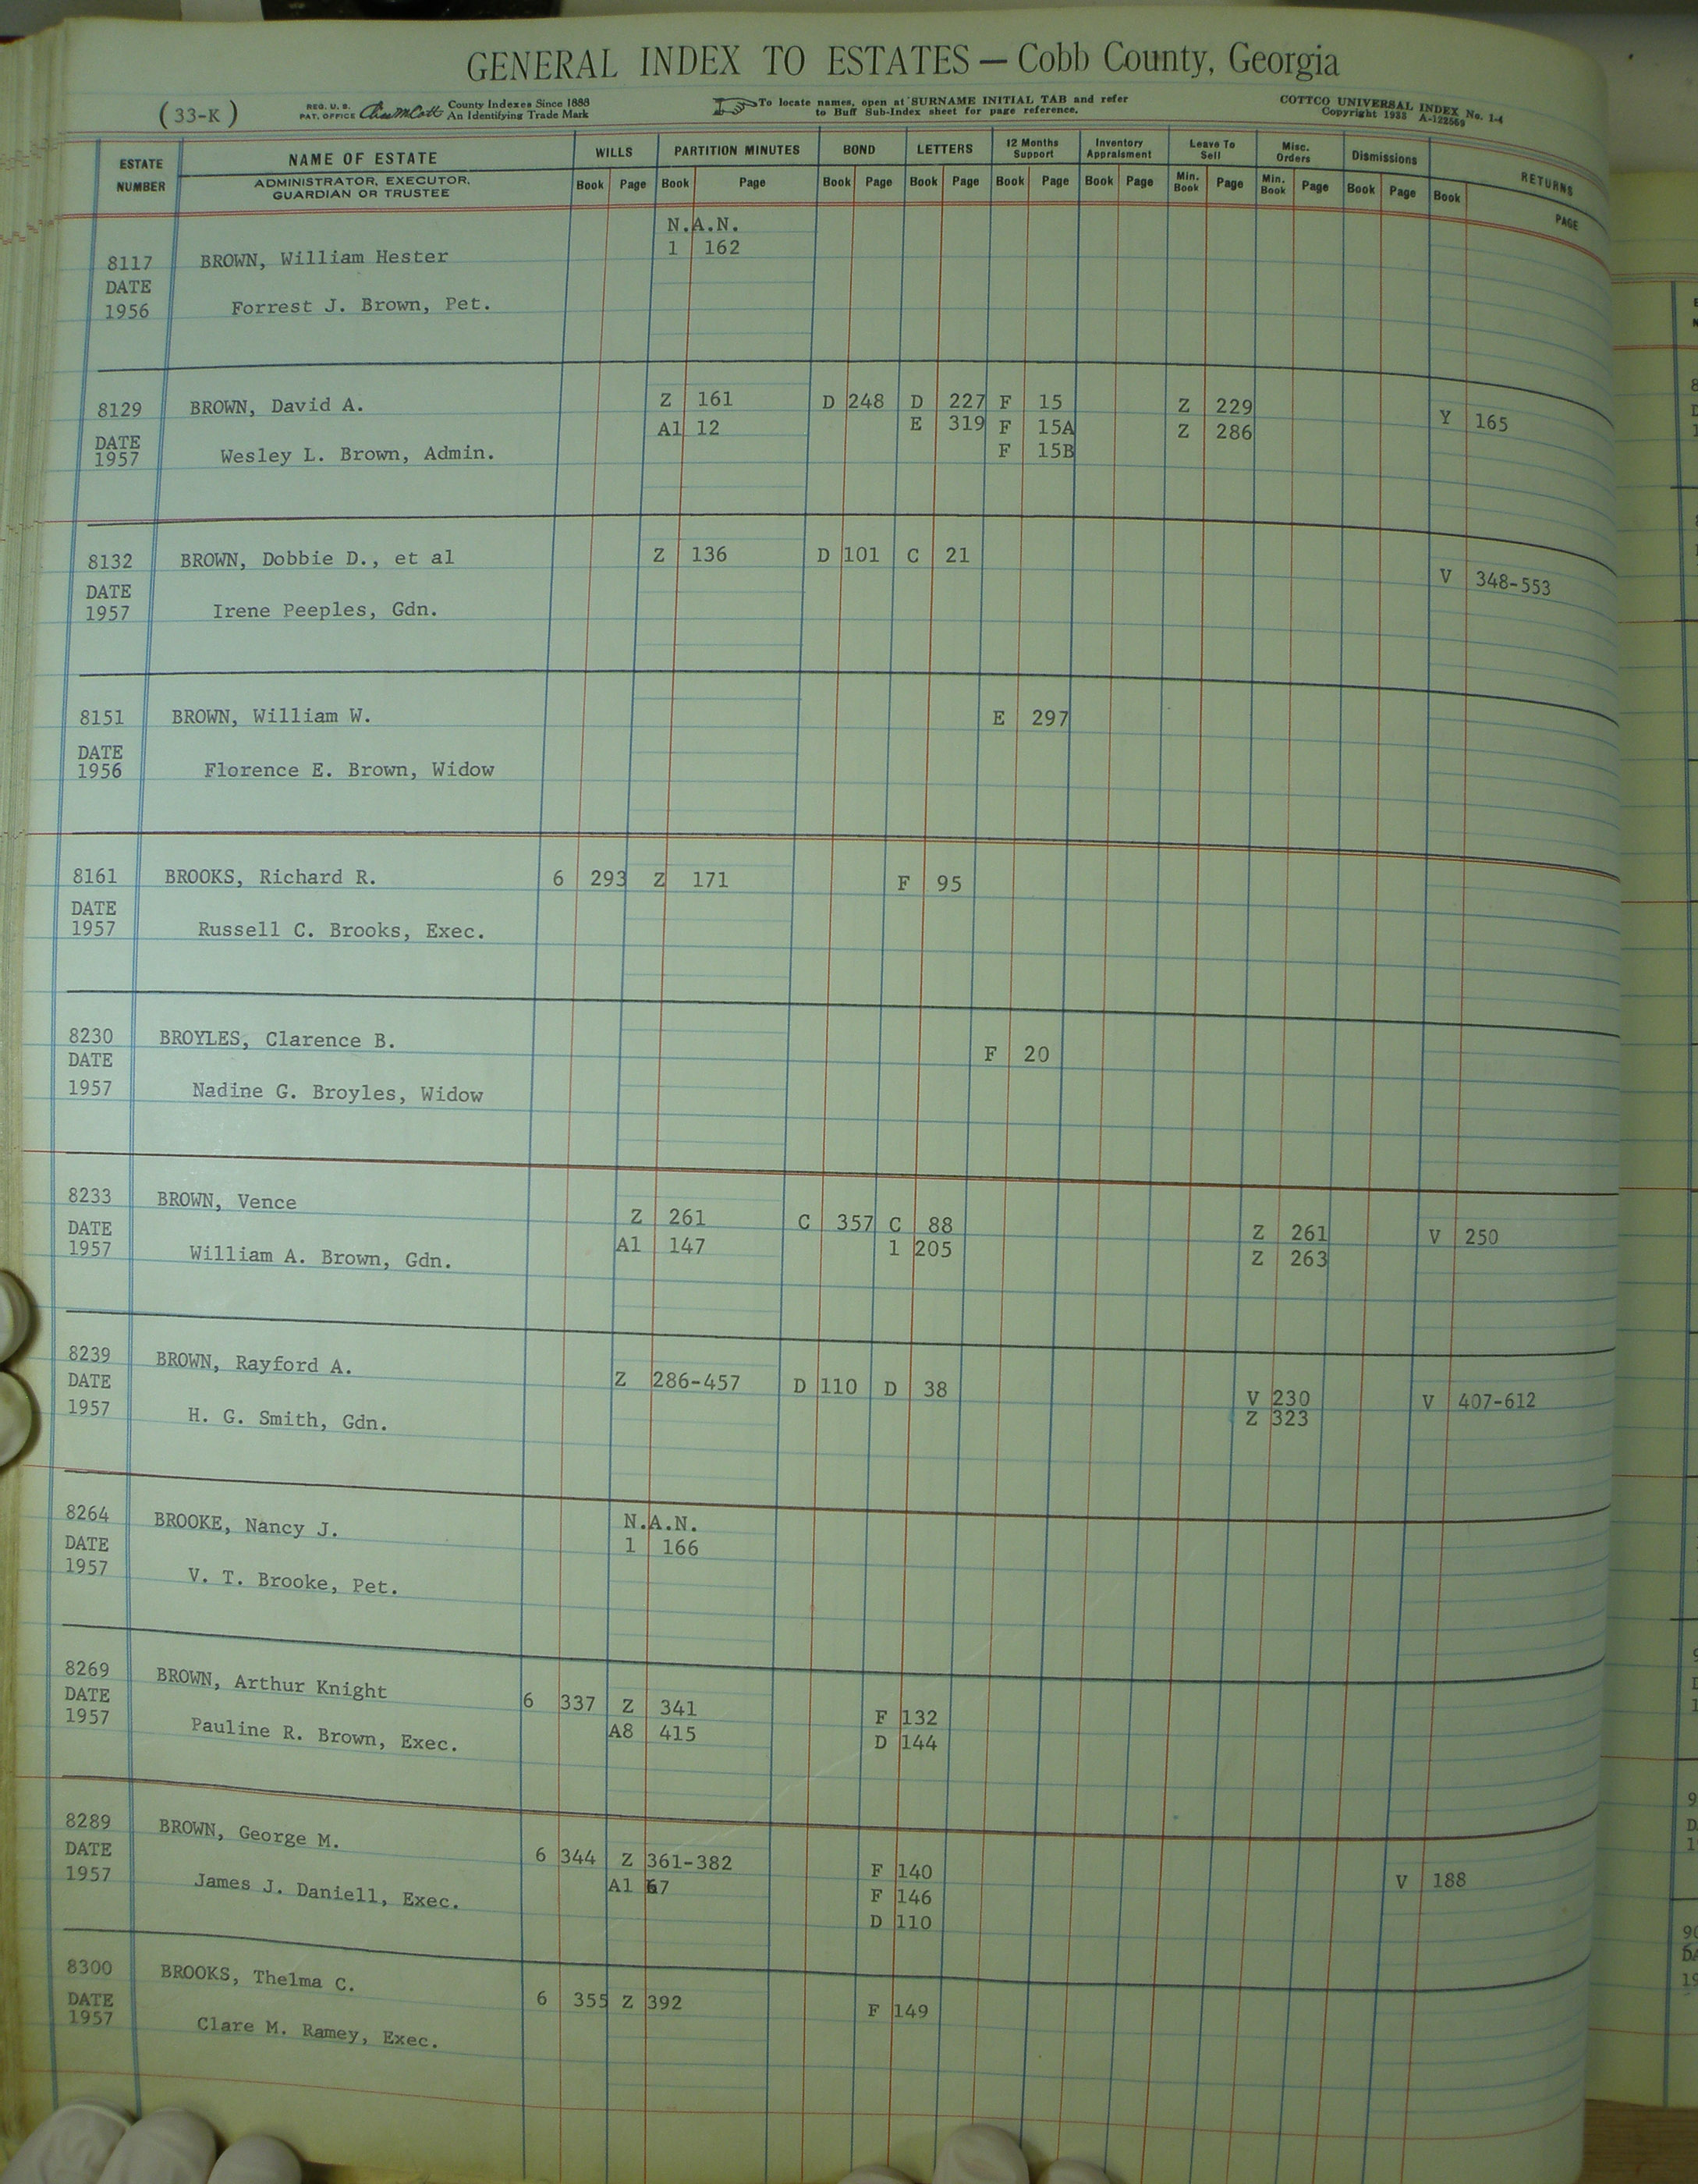 GENERAL INDEX TO ESTATES — Cobb County, Georgia
(33-K) REG. U. S. PAT. OFFICE County Indexes Since 1888 An Identifying Trade Mark
To locate names, open at SURNAME INITIAL TAB and refer to Buff Sub-Index sheet for page reference.
COTTCO UNIVERSAL INDEX No. 1-4
Copyright 1933 A-122569
ESTATE NUMBER NAME OF ESTATE WILLS PARTITION MINUTES BOND LETTERS 12 Months Support Inventory Appraisment Leave To Sell Misc. Orders Dismissions RETURNS
ADMINISTRATOR, EXECUTOR, GUARDIAN OR TRUSTEE Book Page Book Page Book Page Book Page Book Page Book Page Min. Book Page Min. Book Page Book Page Book PAGE
N.A.N.
8117 BROWN, William Hester 1 162
DATE
1956 Forrest J. Brown, Pet.
8129 BROWN, David A. Z 161 D 248 D 227 F 15 Z 229 Y 165
DATE A1 12 E 319 F 15A Z 286
1957 Wesley L. Brown, Admin. F 15B
8132 BROWN, Dobbie D., et al Z 136 D 101 C 21 V 348-553
DATE
1957 Irene Peeples, Gdn.
8151 BROWN, William W. E 297
DATE
1956 Florence E. Brown, Widow
8161 BROOKS, Richard R. 6 293 Z 171 F 95
DATE
1957 Russell C. Brooks, Exec.
8230 BROYLES, Clarence B. F 20
DATE
1957 Nadine G. Broyles, Widow
8233 BROWN, Vence
DATE Z 261 C 357 C 88 Z 261 V 250
1957 William A. Brown, Gdn. A1 147 1 205 Z 263
8239 BROWN, Rayford A.
DATE Z 286-457 D 110 D 38 V 230 V 407-612
1957 H. G. Smith, Gdn. Z 323
8264 BROOKE, Nancy J. N.A.N.
DATE 1 166
1957 V. T. Brooke, Pet.
8269 BROWN, Arthur Knight
DATE 6 337 Z 341 F 132
1957 Pauline R. Brown, Exec. A8 415 D 144
8289 BROWN, George M.
DATE 6 344 Z 361-382 F 140 V 188
1957 James J. Daniell, Exec. A1 67 F 146
D 110
8300 BROOKS, Thelma C.
DATE 6 355 Z 392 F 149
1957 Clare M. Ramey, Exec.